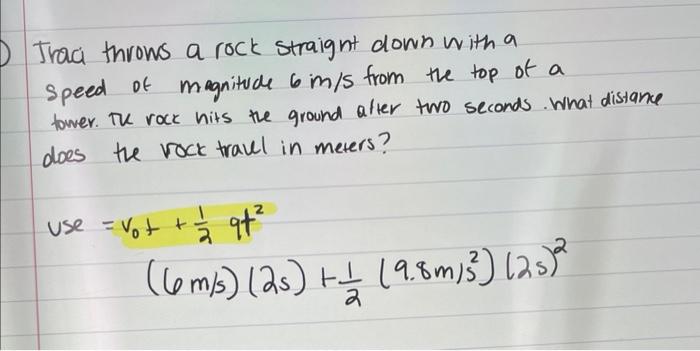 ) Traci throws a rock straight down with a
speed of magnitude 6 m/s from the top of a
tower. The rock hits the ground after two seconds. What distance
does the rock travel in meters?
use = v₀t + 1/2 gt²
(6 m/s) (2s) + 1/2 (9.8 m/s²) (2s)²